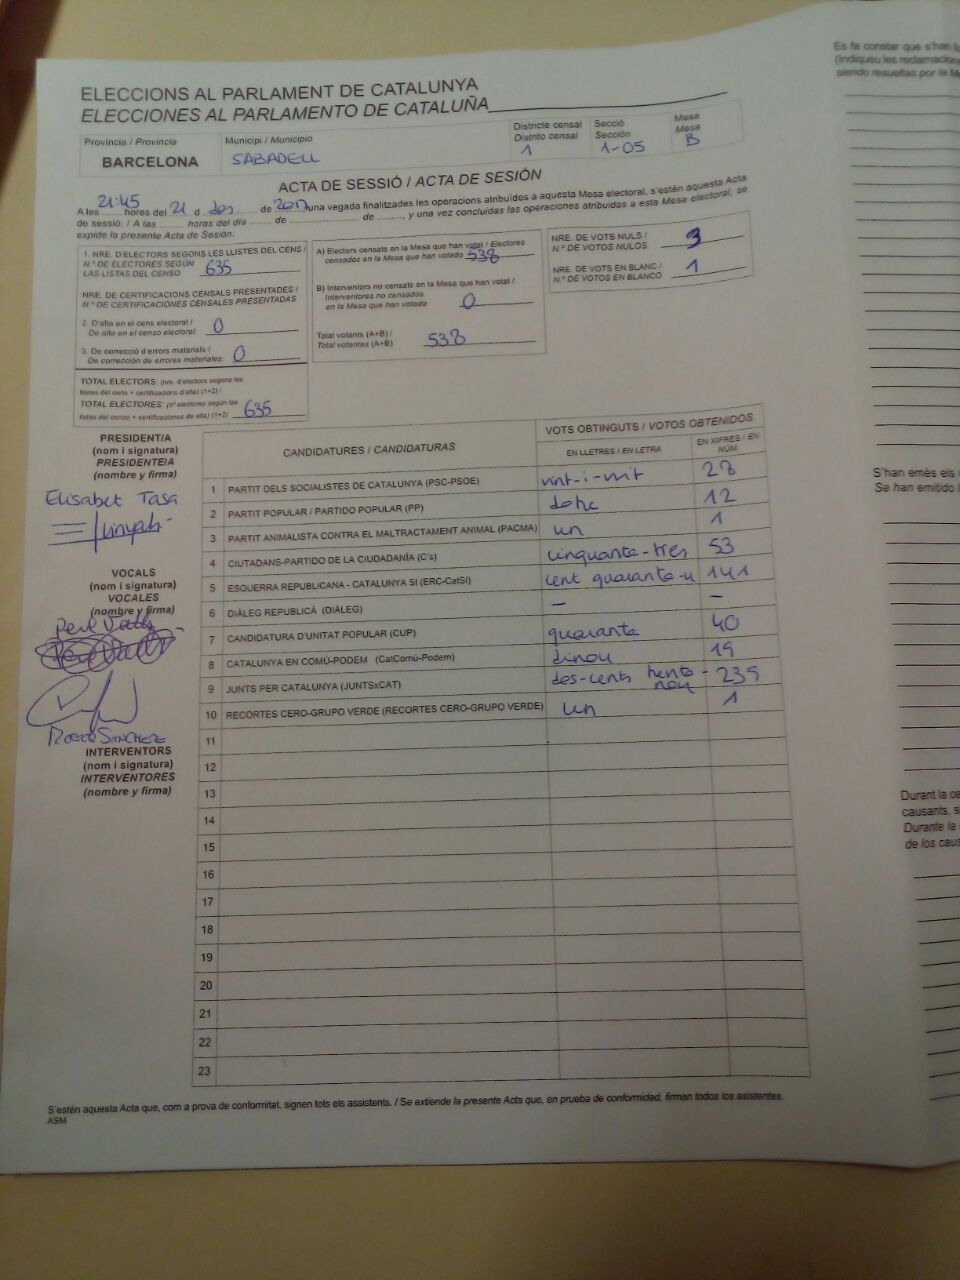 ELECCIONS AL PARLAMENT DE CATALUNYA
ELECCIONES AL PARLAMENTO DE CATALUÑA
Província / Provincia
BARCELONA
Municipi / Municipio
SABADELL
Districte censal
Distrito censal
1
Secció
Sección
1-05
Mesa
Mesa
B
ACTA DE SESSIÓ / ACTA DE SESIÓN
A les 21:45 hores del 21 d des de 2017, una vegada finalitzades les operacions atribuïdes a aquesta Mesa electoral, s'estén aquesta Acta
de sessió: / A las ........ horas del día ........ de ........ de ........, y una vez concluidas las operaciones atribuidas a esta Mesa electoral, se
expide la presente Acta de Sesión:
1. NRE. D'ELECTORS SEGONS LES LLISTES DEL CENS /
N.º DE ELECTORES SEGÚN
LAS LISTAS DEL CENSO 635
NRE. DE CERTIFICACIONS CENSALS PRESENTADES /
N.º DE CERTIFICACIONES CENSALES PRESENTADAS
2. D'alta en el cens electoral /
De alta en el censo electoral: 0
3. De correcció d'errors materials /
De corrección de errores materiales: 0
TOTAL ELECTORS: (nre. d'electors segons les
llistes del cens + certificacions d'alta) (1+2) /
TOTAL ELECTORES: (nº electores según las
listas del censo + certificaciones de alta) (1+2) 635
A) Electors censats en la Mesa que han votat / Electores
censados en la Mesa que han votado 538
B) Interventors no censats en la Mesa que han votat /
Interventores no censados
en la Mesa que han votado 0
Total votants (A+B) /
Total votantes (A+B) 538
NRE. DE VOTS NULS /
N.º DE VOTOS NULOS 3
NRE. DE VOTS EN BLANC /
N.º DE VOTOS EN BLANCO 1
PRESIDENT/A
(nom i signatura)
PRESIDENTE/A
(nombre y firma)
Elisabet Tasa
VOCALS
(nom i signatura)
VOCALES
(nombre y firma)
Pere Valls
INTERVENTORS
(nom i signatura)
INTERVENTORES
(nombre y firma)
CANDIDATURES / CANDIDATURAS
VOTS OBTINGUTS / VOTOS OBTENIDOS
EN LLETRES / EN LETRA
EN XIFRES / EN NÚM
1 PARTIT DELS SOCIALISTES DE CATALUNYA (PSC-PSOE) vint-i-vuit 28
2 PARTIT POPULAR / PARTIDO POPULAR (PP) dotze 12
3 PARTIT ANIMALISTA CONTRA EL MALTRACTAMENT ANIMAL (PACMA) un 1
4 CIUTADANS-PARTIDO DE LA CIUDADANÍA (C's) cinquanta-tres 53
5 ESQUERRA REPUBLICANA - CATALUNYA SÍ (ERC-CatSÍ) cent quaranta-u 141
6 DIÀLEG REPUBLICÀ (DIÀLEG) – –
7 CANDIDATURA D'UNITAT POPULAR (CUP) quaranta 40
8 CATALUNYA EN COMÚ-PODEM (CatComú-Podem) dinou 19
9 JUNTS PER CATALUNYA (JUNTSxCAT) dos-cents trenta-nou 239
10 RECORTES CERO-GRUPO VERDE (RECORTES CERO-GRUPO VERDE) un 1
11
12
13
14
15
16
17
18
19
20
21
22
23
S'estén aquesta Acta que, com a prova de conformitat, signen tots els assistents. / Se extiende la presente Acta que, en prueba de conformidad, firman todos los asistentes.
ASM
Es fa constar que s'han
(Indiqueu les reclamacion
siendo resueltas por la
S'han emès els
Se han emitido
Durant la
causants,
Durante la
de los